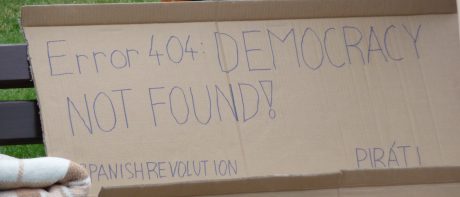 Error 404: DEMOCRACY
NOT FOUND!
PANISHREVOLUTION PIRÁTI